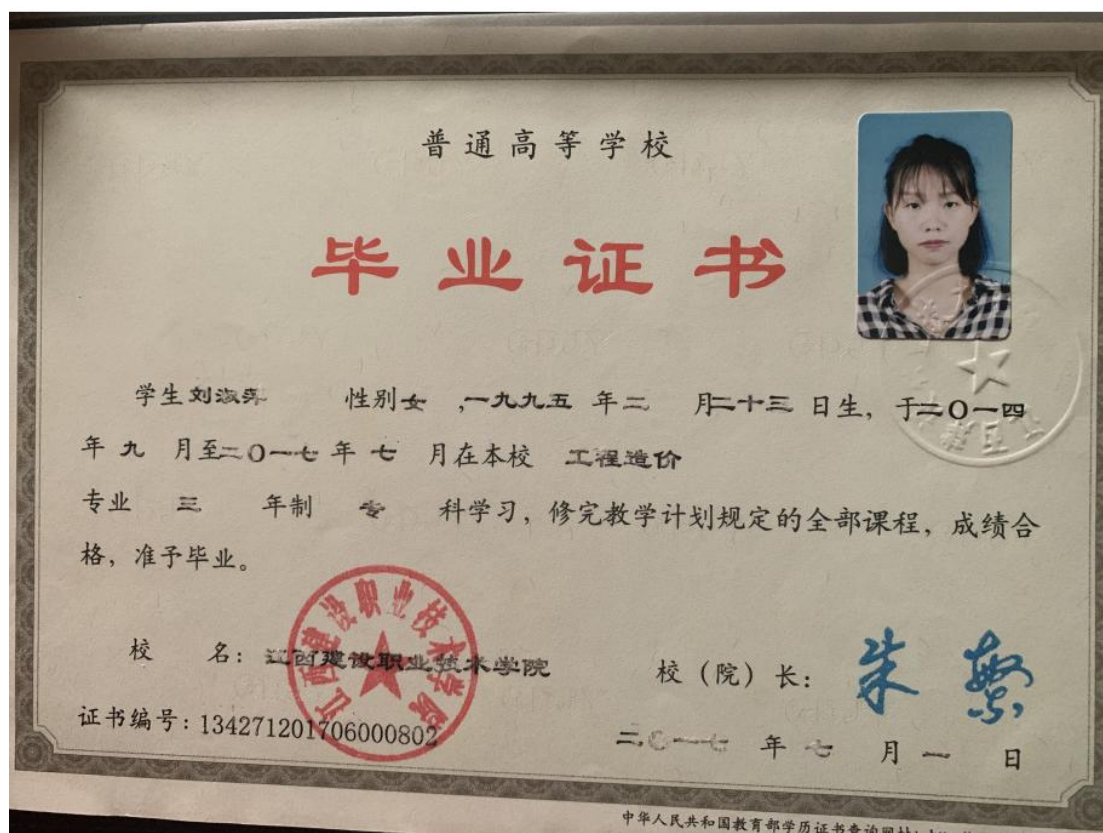 普通高等学校
毕业证书
学生刘淑萍 性别女 ,一九九五 年二 月二十三 日生, 于二〇一四
年 九 月至二〇一七 年 七 月在本校 工程造价
专业 三 年制 专 科学习, 修完教学计划规定的全部课程, 成绩合
格, 准予毕业。
江西建设职业技术学院
校 名: 江西建设职业技术学院
校(院)长: 朱
证书编号: 134271201706000802
二〇一七 年 七 月 一 日
中华人民共和国教育部学历证书查询网址